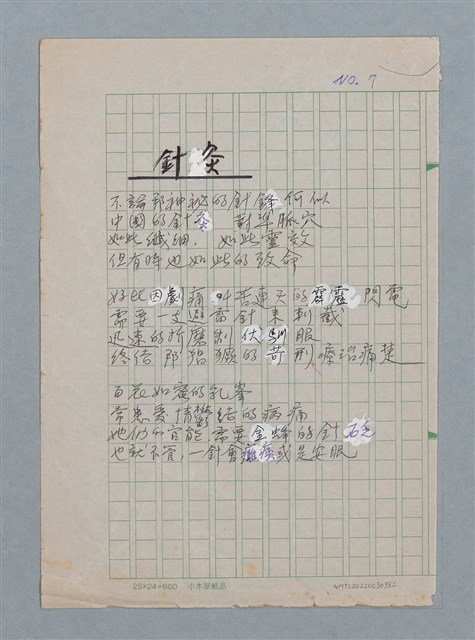 NO. 7
針灸
不論那神祕的針鋒何似
中國的針灸 對準脈穴
如此纖細， 如此靈效
但有時也如此的致命
好比因劇痛 叫苦連天的霹靂閃電
需要一支避雷針來刺戳
迅速的折磨制伏馴服
終結那猖獗的苛刑 療治痛楚
百花如蜜的乳峯
常患愛情鬱結的病痛
她們的官能 需要金蜂的針砭
也就不管，一針會癱瘓或是安眠
25×24=600 小本屋紙品
NMTL20220030382